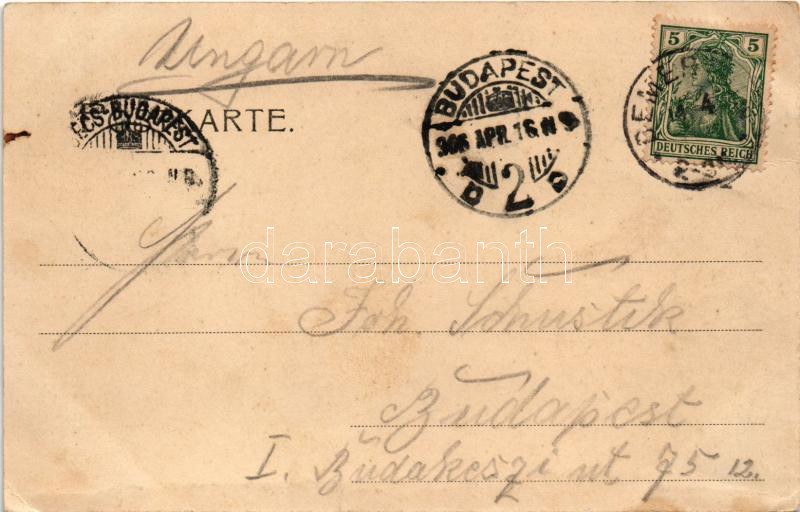 Ungarn
KARTE.
BÉCS-BUDAPEST
BUDAPEST
906 APR. 16. N 9
2
BREMEN
5 5
DEUTSCHES REICH
darabanth
Herrn
Joh. Schustek
Budapest
I. Budakeszi ut 75 12.